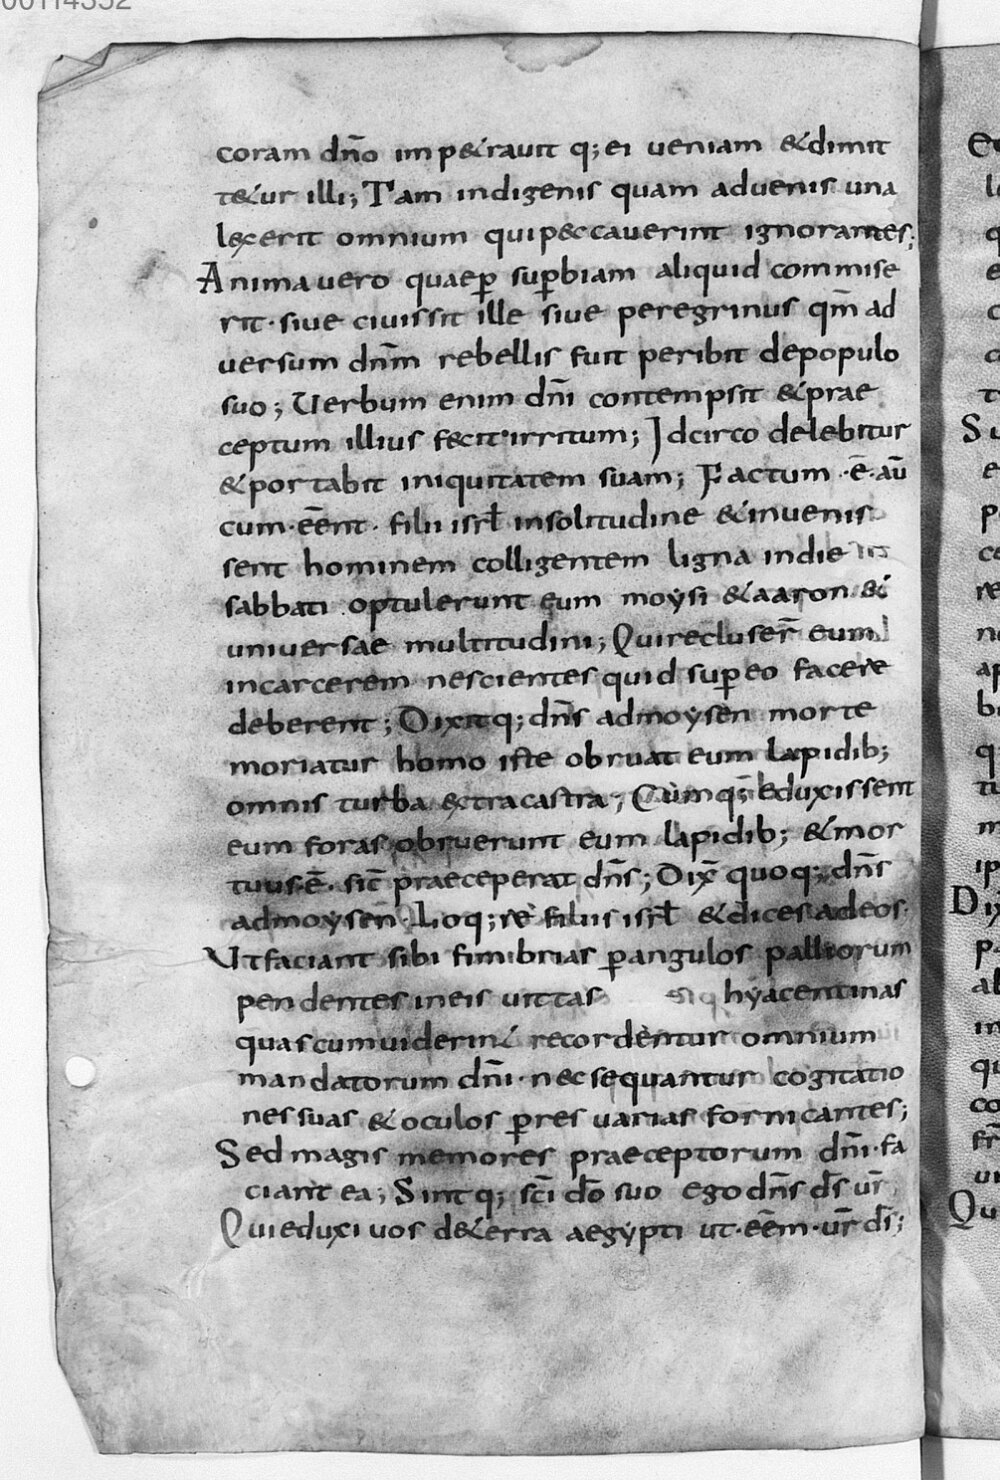 coram dn̄o imp&rauit q; ei ueniam &dimit
t&ur illi; Tam indigenis quam aduenis una
lex erit omnium qui peccauerint ignorantes;
Anima uero quae p̄ sup̄biam aliquid commise
rit· siue ciuis sit ille siue peregrinus qm̄ ad
uersum dnm̄ rebellis fuit peribit de populo
suo; Uerbum enim dn̄i contempsit & prae
ceptum illius fecit irritum; Idcirco delebitur
& portabit iniquitatem suam; Factum ·ē· aū
cum· eēnt· filii isrł in solitudine & inuenis
sent hominem colligentem ligna in die
sabbati optulerunt eum moysi & aaron &
uniuersae multitudini; Qui recluser̄ eum
in carcerem nescientes quid sup̄ eo facere
deberent; Dixitq; dn̄s ad moysen morte
moriatur homo iste obruat eum lapidib;
omnis turba extra castra; Cumq; eduxissent
eum foras obruerunt eum lapidib; & mor
tuus·ē· sic̄ praeceperat dn̄s; Dix̄ quoq; dn̄s
ad moysen· Loq;re filiis isrł & dices ad eos·
Ut faciant sibi fimbrias p̄ angulos palliorum
pendentes in eis uittas hyacentinas
quas cum uiderint recordentur omnium
mandatorum dn̄i· nec sequantur cogitatio
nes suas & oculos p̄ res uarias fornicantes;
Sed magis memores praeceptorum dn̄i· fa
ciant ea; Sintq; sc̄i dō suo ego dn̄s ds̄ ur̄
Qui eduxi uos de terra aegypti ut· eēm· ur̄ ds̄;